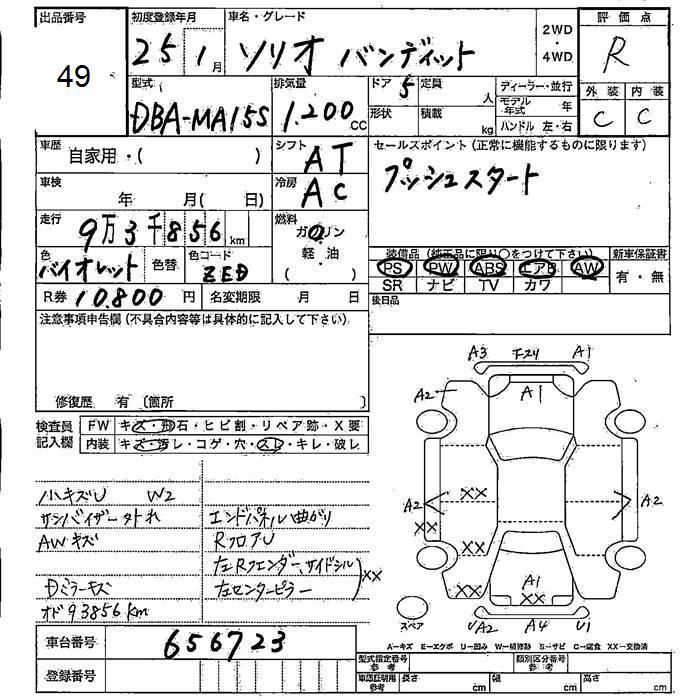 出品番号 49
初度登録年月 25 1 月
車名・グレード ソリオ バンディット
2WD ・ 4WD
評価点 R
型式 DBA-MA15S
排気量 1.200 cc
ドア 5 定員 人
形状 積載 kg
ディーラー・並行
モデル年式 年
ハンドル 左・右
外装 内装
C C
車歴 自家用・( )
シフト AT
セールスポイント(正常に機能するものに限ります)
プッシュスタート
車検 年 月( 日)
冷房 AC
走行 9万3千856 km
燃料 ガソリン
軽・油
( )
色 バイオレット 色替 色コード ZED
装備品(純正品に限り○をつけて下さい) 新車保証書
PS PW ABS エアB AW 有・無
SR ナビ TV カワ
R券 10.800 円 名変期限 月 日
後日品
注意事項申告欄(不具合内容等は具体的に記入して下さい)
修復歴 有 (箇所 )
検査員記入欄 FW キズ・飛石・ヒビ割・リペア跡・X要
内装 キズ・汚レ・コゲ・穴・スレ・キレ・破レ
小キズU W2
サンバイザー外れ エンドパネル曲がり
AWキズ RフロアU
左Rクェンダー、サイドシル
Dミラーキズ 左センターピラー XX
オド93856km
車台番号 656723
登録番号
A3 F-24 A1
A2 A1
A2 XX A2
XX
XX
XX A1
XX
スペア UA2 A4 U1
A-キズ E-エクボ U-凹み W-補修跡 S-サビ C-腐食 XX-交換済
型式指定番号 参考 類別区分番号 参考
車認証明用 参考 長さ cm 幅 cm 高さ cm